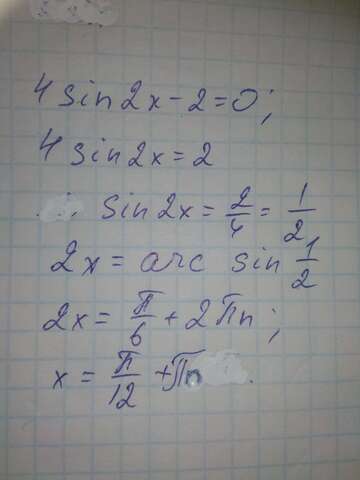 4 sin 2x - 2 = 0;
4 sin 2x = 2
sin 2x = 2/4 = 1/2
2x = arc sin 1/2
2x = π/6 + 2πn;
x = π/12 + πn